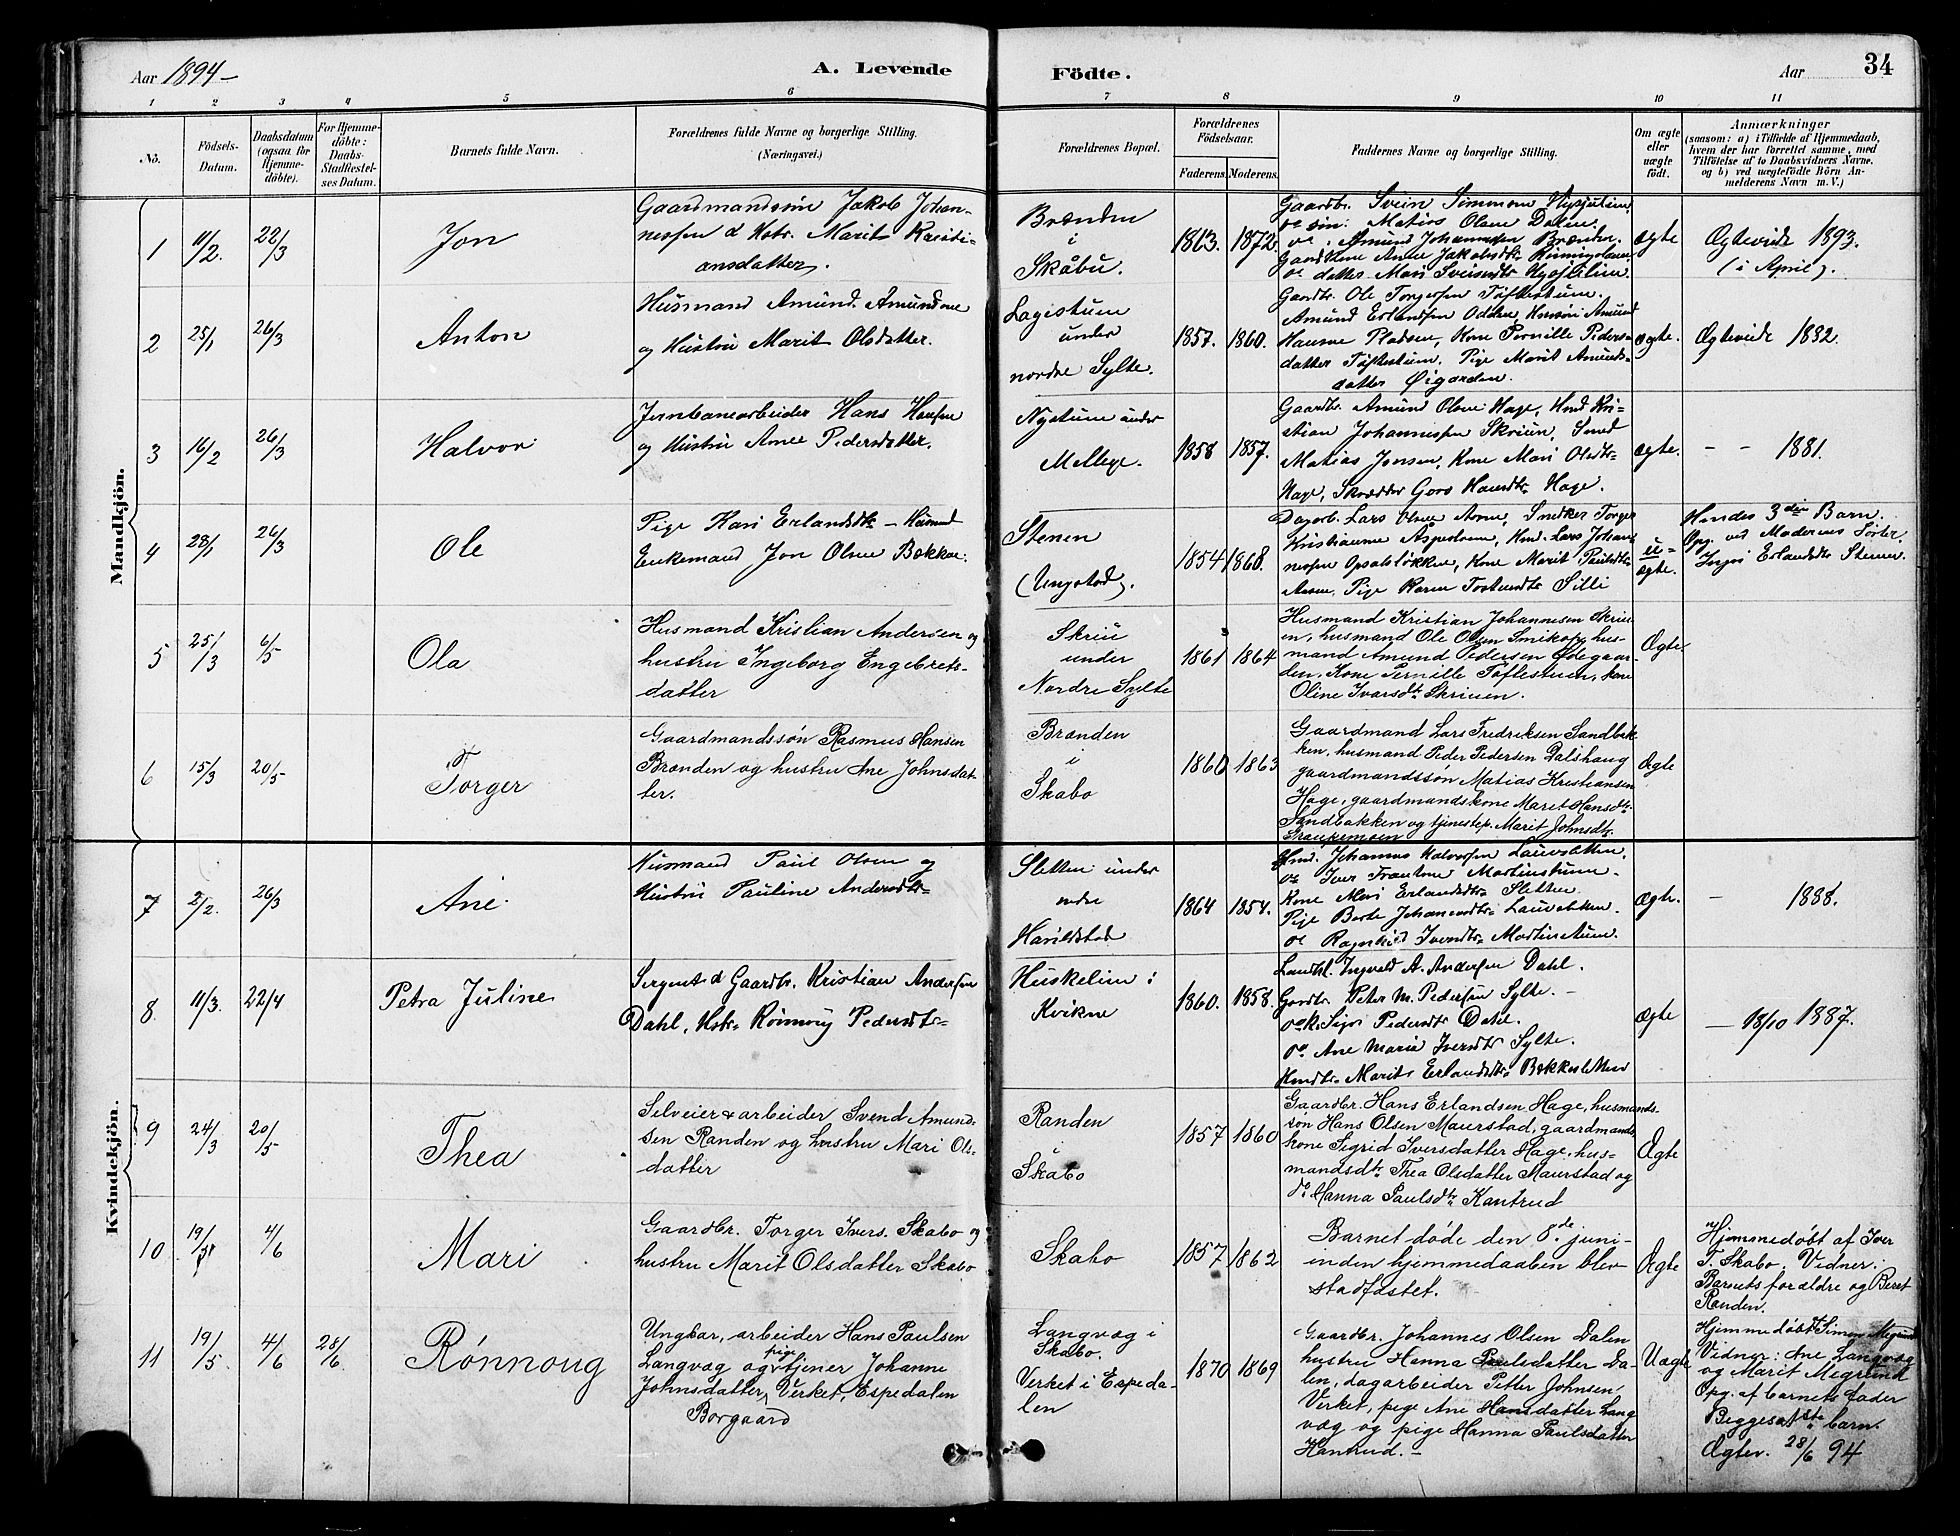 Aar 1894-
A. Levende Födte.
Aar
34
1 2 3 4 5 6 7 8 9 10 11
No.
Födsels-Datum.
Daabsdatum (ogsaa for Hjemme-döbte).
For Hjemme-döbte: Daabs-Stadfæstel-ses Datum.
Barnets fulde Navn.
Forældrenes fulde Navne og borgerlige Stilling.
(Næringsvei.)
Forældrenes Bopæl.
Forældrenes Födselsaar.
Faderens. Moderens.
Faddernes Navne og borgerlige Stilling.
Om ægte eller uægte födt.
Anmærkninger
(saasom: a) i Tilfælde af Hjemmedaab,
hvem der har forrettet samme, med
Tilföielse af to Daabsvidners Navne,
og b) ved uægtefödte Börn An-
melderens Navn m. V.)
Mandkjön.
1 11/2. 22/3 Jon
Gaardmandssön Jakob Johan-
nessen & Hstr. Marit Kristi-
ansdatter.
Brænden
i
Skåbu.
1863. 1872.
Gaardbr. Svein Simonsen
Matias Olsen Dalen.
Amund Johannessen Brænden.
ægte
Ægteviede 1893.
(i April).
2 25/1 26/3 Anton
Husmand Amund Amundsen
og Hustru Marit Olsdatter.
Lagestuen
under
nordre Sylte.
1857. 1860.
Gaardbr. Ole Torgersen Töftestuen.
Amund Erlandsen Odden, Husm. Amund
Hansen Pladsen, Kone Pernille Peders-
datter Töftestuen, Pige Marit Amunds-
datter Øigarden.
ægte.
Ægteviede 1882.
3 16/2 26/3 Halvor.
Jernbanearbeider Hans Hansen
og Hustru Anne Pedersdatter.
Nystuen under
Mellege.
1858 1857.
Gaardbr. Amund Olsen Hage, Hmd Kri-
stian Johannessen Skriuen, Smed
Matias Jonsen, Kone Mari Olsdtr
Hage, Skrædder Goro Hansdtr Hage.
ægte.
- - 1881.
4 28/1 26/3 Ole
Pige Kari Erlandsdtr - Husmd
Enkemand Jon Olsen Bækken.
Stenen
(Ungstad).
1854 1868.
Dagarb. Lars Olsen Aaen, Snedker Torger
Kristiansen Aspestuen, Hmd. Lars Johan-
nessen Opsalsløkken, Kone Marit Paulsdtr
Aaen, Pige Karen Tostensdtr Silli
u-
ægte.
Hendes 3die Barn.
Opg. ved Moderens Söster,
Inger Erlandsdtr Stenen.
5 25/13 6/5 Ola
Husmand Kristian Andersen og
hustru Ingeborg Engebrets-
datter
Skriu
under
Nordre Sylte
1861 1864
Husmand Kristian Johannesen Skriu-
en, husmand Ole Olsen Smikop, hus-
mand Amund Pedersen Ødegaar-
den, Kone Pernille Töftestuen, kone
Oline Ivarsdtr Skriuen.
Ægte.
6 15/3 20/5 Torger
Gaardmandssön Rasmus Hansen
Brænden og hustru Ane Johnsdat-
ter.
Brænden
i
Skabo
1860 1863
Gaardmand Lars Fredriksen Sandbak-
ken, husmand Peder Pedersen Dalshaug
gaardmandssön Matias Kristiansen
Hage, gaardmandskone Marit Hansdtr
Sandbakken og tjenestep. Marit Johnsdtr.
Graupemoen
Ægte
Kvindekjön.
7 2/2. 26/3 Ane.
Husmand Paul Olsen og
Hustru Pauline Andersdtr
Sletten under
Harildstad
1864 1854.
Hmd. Johannes Halvorsen Lauvsletten.
Kone Mari Erlandsdtr Sletten.
Pige Berte Johansdtr Lauvsletten.
Ragnhild Iversdtr Martinstuen.
Ægte.
- 1888.
8. 11/3. 22/4 Petra Juline
Sergent & Gaardbr. Kristian Andersen
Dahl, Hstr Rönnoug Pedersdtr
Huskelien i
Kvikne
1860. 1858.
Landhl. Ingvald A. Andersen Dahl.
Gardbr. Peter M. Pedersen Sylte.
Pedersdtr Dahl.
Ane Maria Iversdtr Sylte.
Marit Erlandsdtr Bækkesletten
Ægte
- 18/10 1887.
9 24/3 20/5 Thea
Selveier & arbeider Svend Amund-
sen Randen og hustru Mari Ols-
datter
Randen
i
Skabo
1857 1860
Gaardbr. Hans Erlandsen Hage, husmands-
søn Hans Olsen Maurstad, gaardmands-
kone Sigrid Iversdatter Hage, hus-
mandsdtr. Thea Olsdatter Maurstad og
do. Hanna Paulsdtr Kantrud
Ægte
10 19/5 4/6 Mari
Gaardbr. Torger Ivers. Skabo og
hustru Marit Olsdatter Skabo
Skabo
1857 1862
Barnet døde den 8de juni
inden hjemmedaaben blev
stadfæstet.
Ægte
Hjemmedøbt af Iver
T. Skabo. Vidner:
Barnets forældre og Berit
Randen.
11 19/5. 4/6 28/6. Rønnoug
Ungkar, arbeider Hans Paulsen
Langvæg og pige, tjener Johanne
Johnsdatter, Verket, Espedalen
Borgaard
Langvæg i
Skabo.
Verket i Espeda-
len
1870 1869
Gaardbr. Johannes Olsen Dalen
hustru Hanna Paulsdatter Da-
len, dagarbeider Petter Johnsen
Verket, pige Ane Hansdatter Lang-
væg og pige Hanna Paulsdatter
Kantrud.-
Uægte
Hjemmedøbt Simen Megrund
Vidner: Ane Langvæg
og Marit Megrund
Opg. af barnets fader
Begges 1ste barn.
Ægtev. 28/6 94